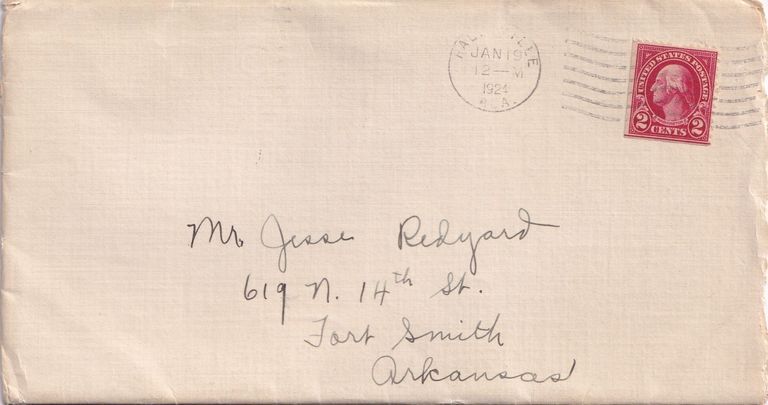 JAN 19
12—M
1924
ALA.
UNITED STATES POSTAGE
2 CENTS 2
Mr Jesse Redyard
619 N. 14th St.
Fort Smith
Arkansas